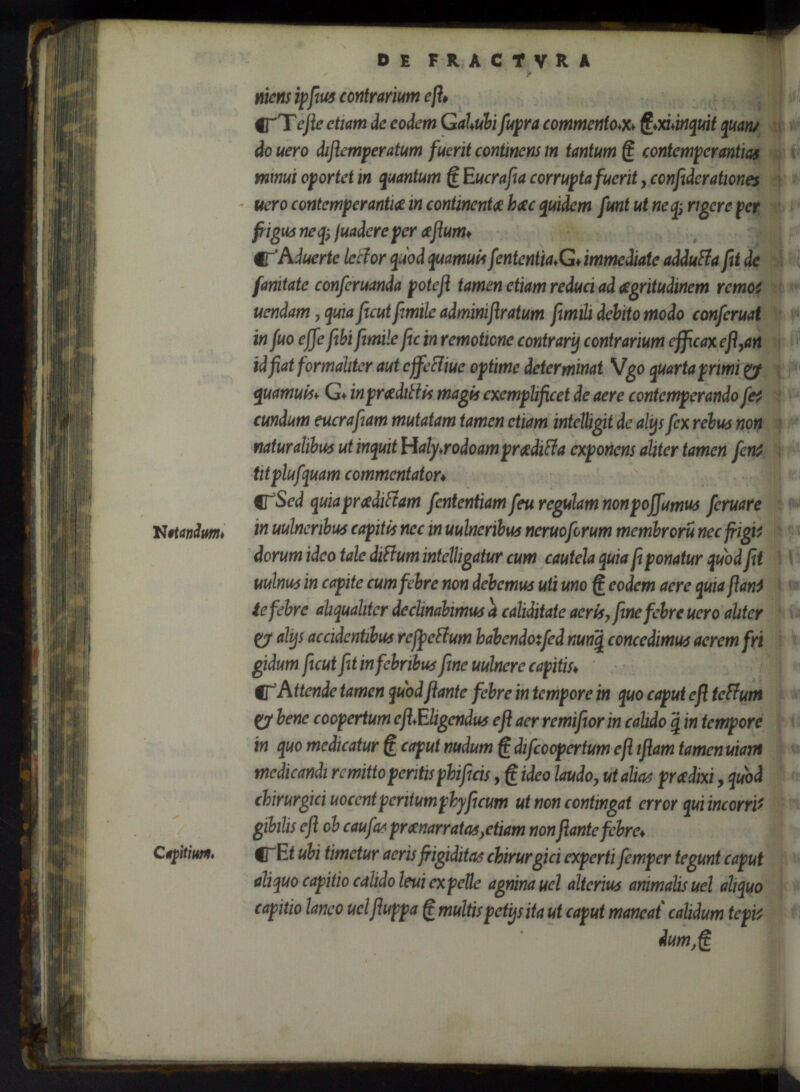 DE FRACTVRA
niens ipſius contrarium eſt.
¶ Teſte etiam de eodem Gal.ubi ſupra commento.x. &.xi.inquit quan⸗
do uero diſtemperatum fuerit continens in tantum & contemperantias
minui oportet in quantum & Eucraſia corrupta fuerit, conſiderationes
uero contemperantiæ in continenta hæc quidem ſunt ut neq; rigere per
frigus neq; ſuadere per æſtum.
¶ Aduerte lector quòd quamuis ſententia.G. immediate adducta ſit de
ſanitate conſeruanda poteſt tamen etiam reduci ad ægritudinem remo⸗
uendam, quia ſicut ſimile adminiſtratum ſimili debito modo conſeruat
in ſuo eſſe ſibi ſimile ſic in remotione contrarij contrarium efficax eſt,an
id fiat formaliter aut effectiue optime determinat Vgo quarta primi &
quamuis. G. in prædictis magis exemplificet de aere contemperando ſe⸗
cundum eucraſiam mutatam tamen etiam intelligit de alijs ſex rebus non
naturalibus ut inquit Haly.rodoam prædicta exponens aliter tamen ſen⸗
tit pluſquam commentator.
¶ Sed quia prædictam ſententiam ſeu regulam non poſſumus ſeruare
Notandum. in uulneribus capitis nec in uulneribus neruoſorum membrorũ nec frigi⸗
dorum ideo tale dictum intelligatur cum cautela quia ſi ponatur quòd ſit
uulnus in capite cum febre non debemus uti uno & eodem aere quia ſtan⸗
te febre aliqualiter declinabimus à caliditate aeris, ſine febre uero aliter
& alijs accidentibus reſpectum habendo:ſed nunq̃ concedimus aerem fri
gidum ſicut fit in febribus ſine uulnere capitis.
¶ Attende tamen quòd ſtante febre in tempore in quo caput eſt tectum
& bene coopertum eſt.Eligendus eſt aer remiſſior in calido q̃ in tempore
in quo medicatur & caput nudum & diſcoopertum eſt iſtam tamen uiam
medicandi remitto peritis phiſicis, & ideo laudo, ut alias prædixi, quòd
chirurgici uocent peritum phyſicum ut non contingat error qui incorri⸗
gibilis eſt ob cauſas prænarratas,etiam non ſtante febre.
Capitium. ¶ Et ubi timetur aeris frigiditas chirurgici experti ſemper tegunt caput
aliquo capitio calido leui ex pelle agnina uel alterius animalis uel aliquo
capitio laneo uel ſtuppa & multis petijs ita ut caput maneat calidum tepi⸗
dum,&